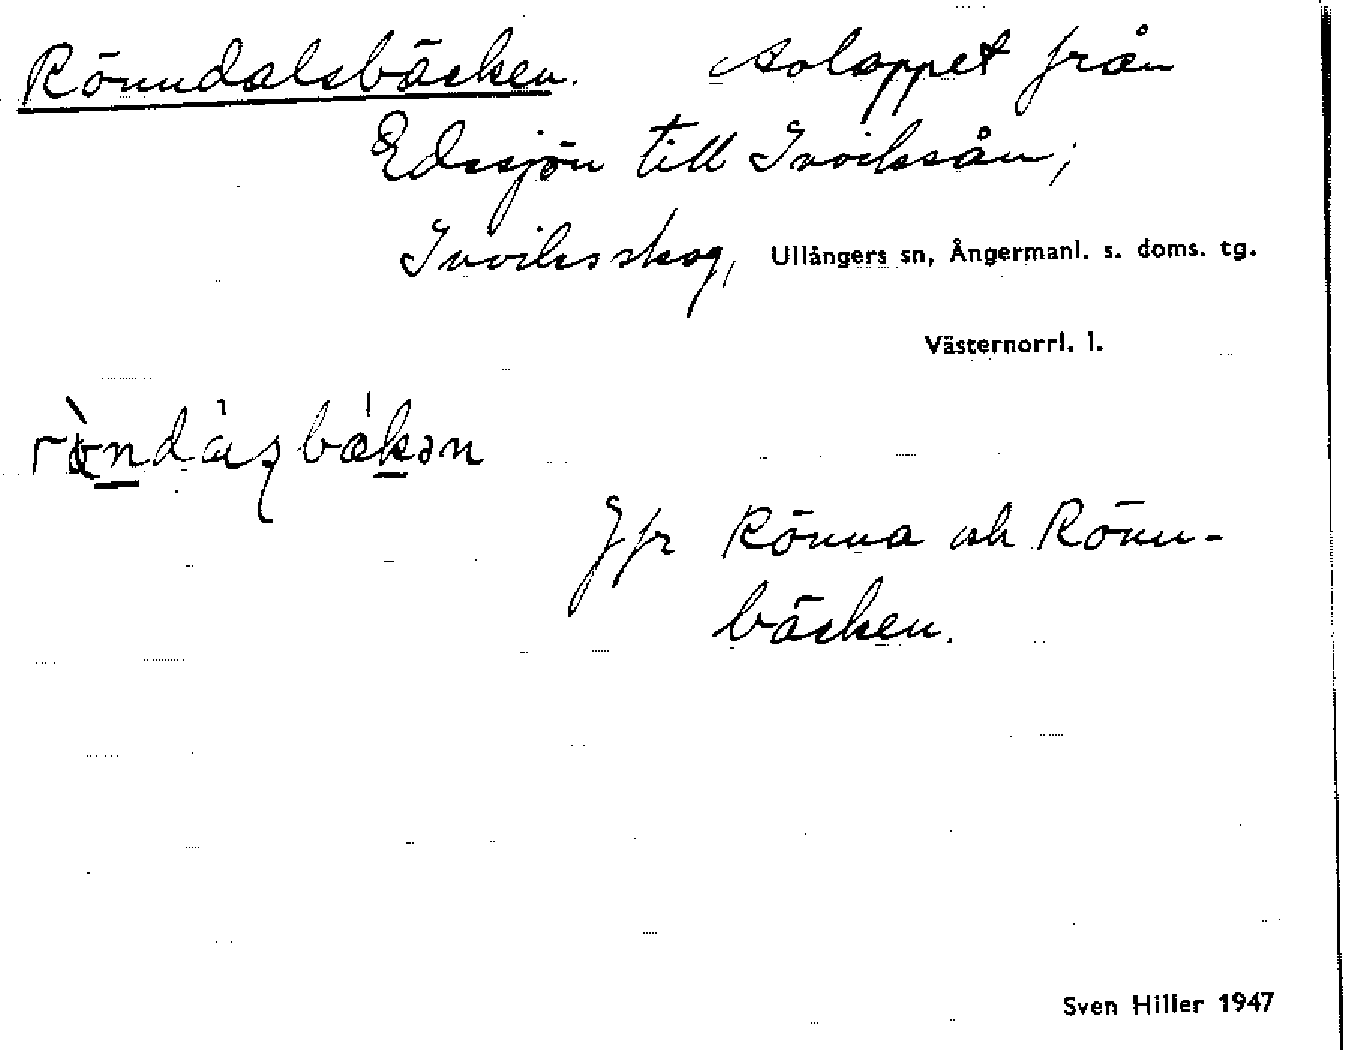 Rönndalsbäcken. avloppet från
Edssjön till Inviksån;
Inviksskog, Ullångers sn, Ångermanl. s. doms. tg.
Västernorrl. l.
Jfr Rönna och Rönn-
bäcken.
Sven Hiller 1947